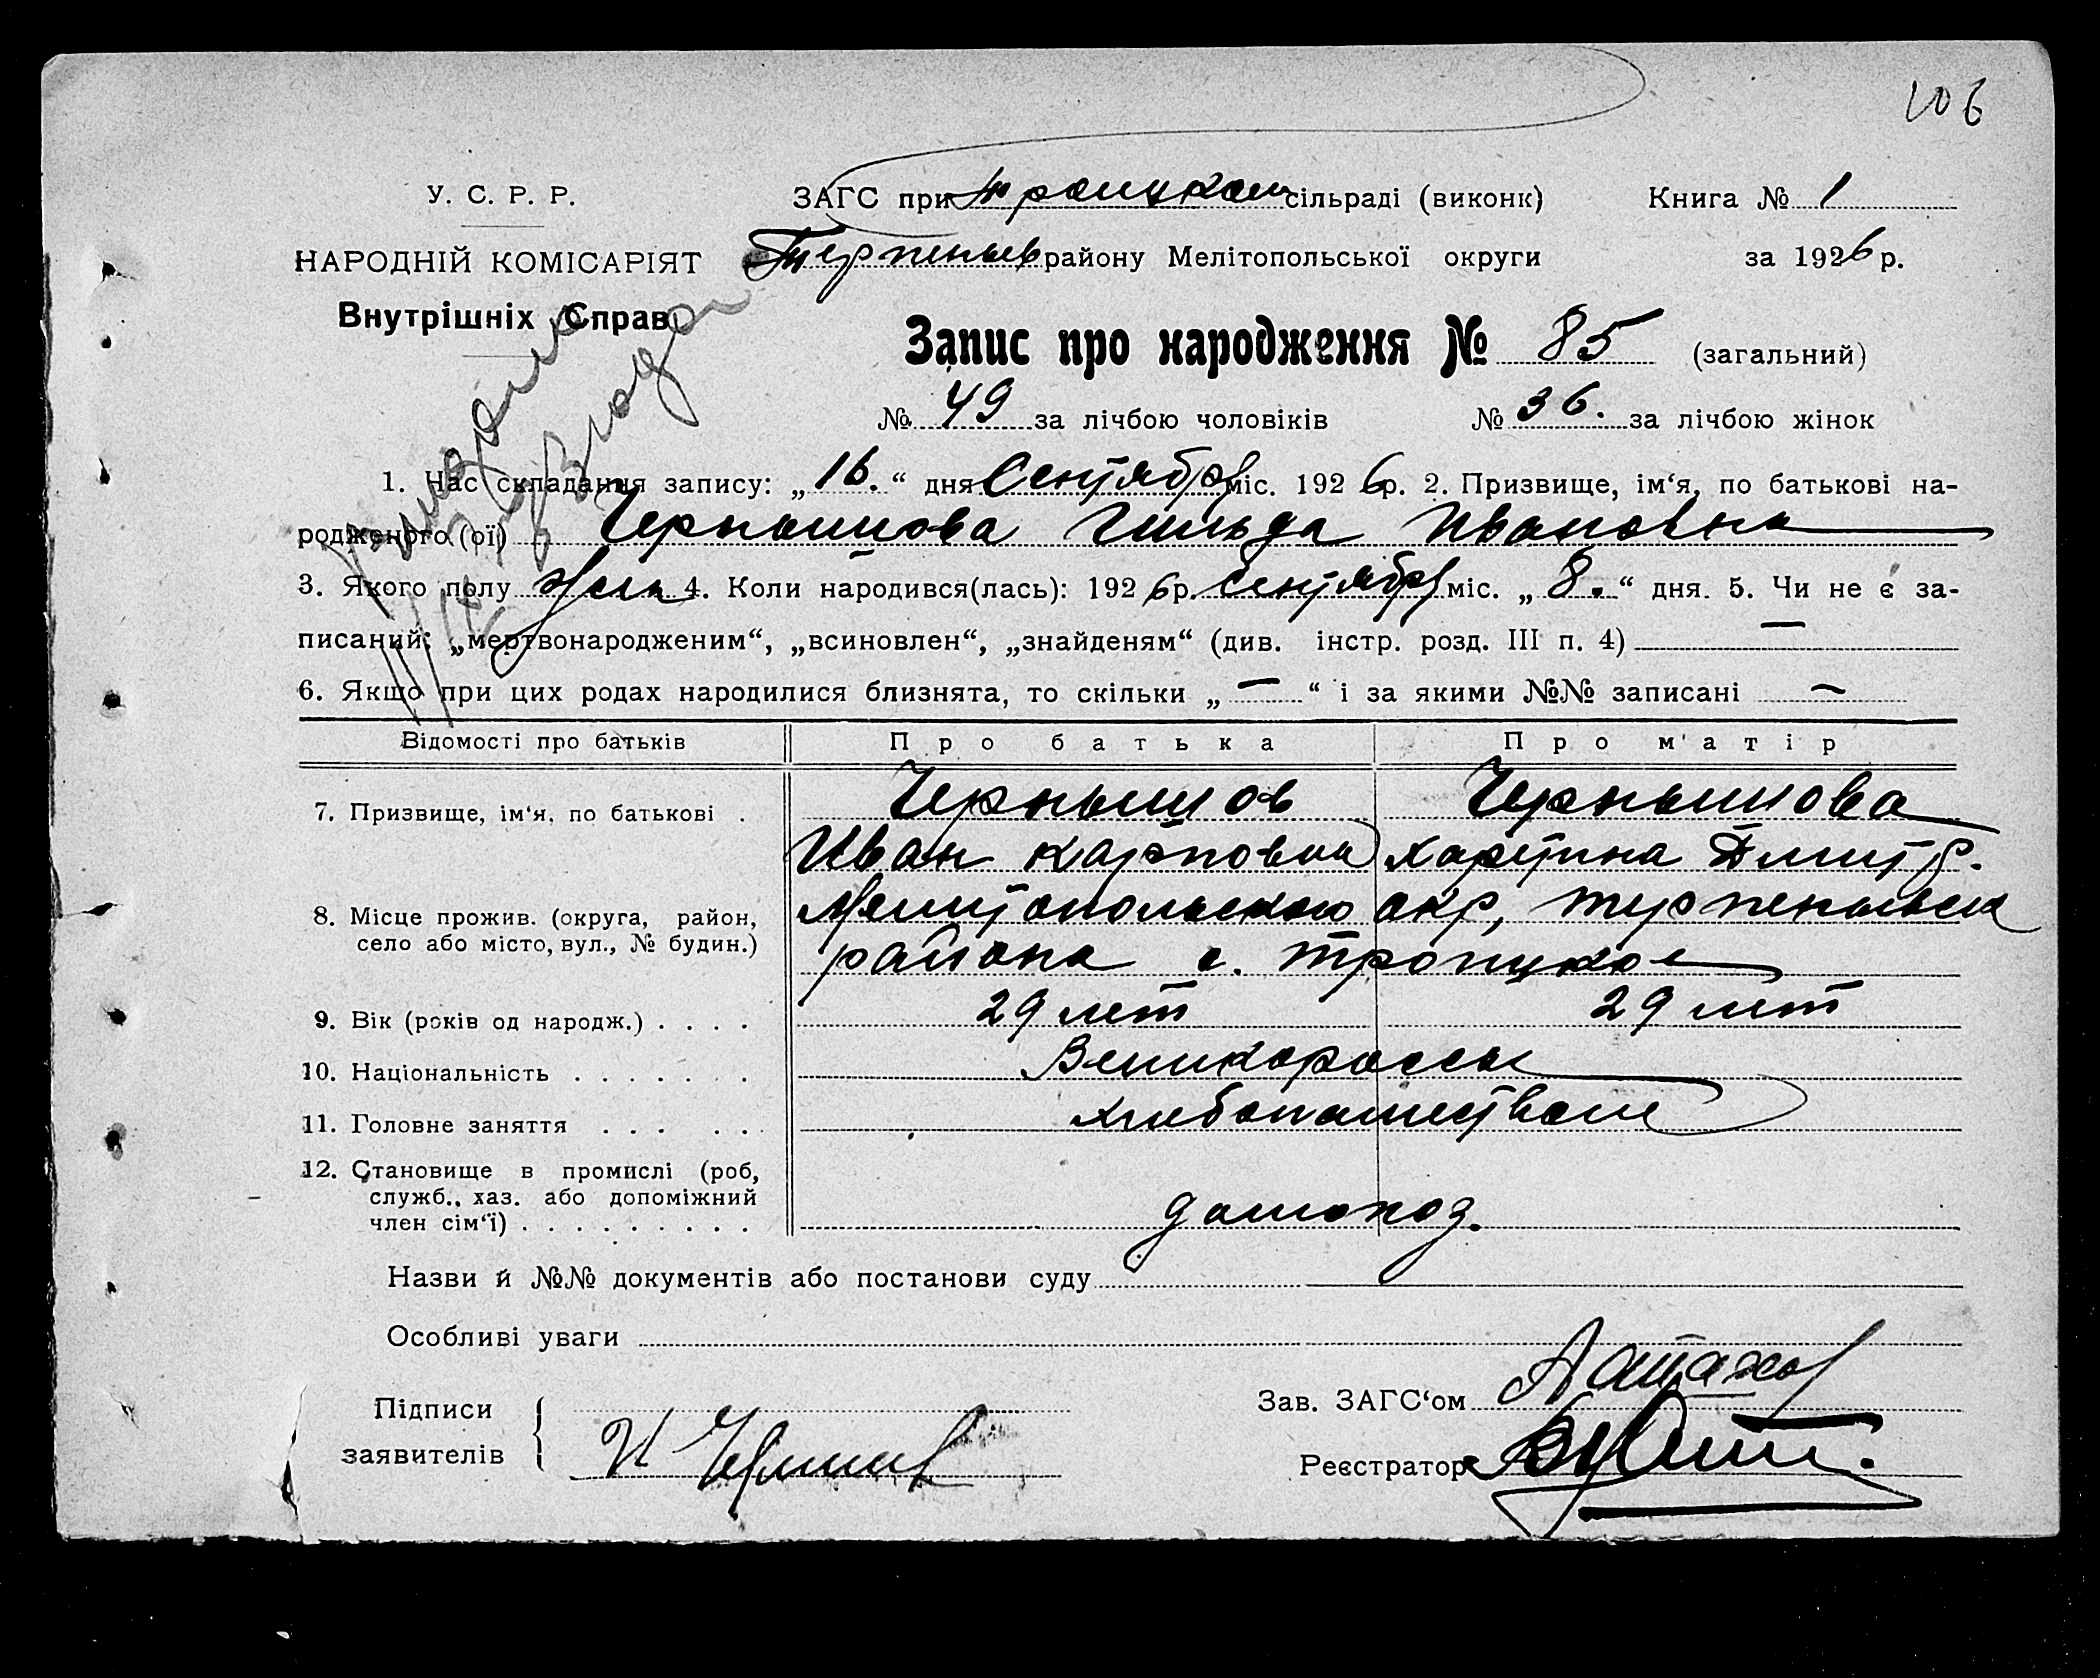 106
У. С. Р. Р.
ЗАГС при Троицком сільраді (виконк)
Книга № 1
НАРОДНІЙ КОМІСАРІЯТ
Терпеньев району Мелітопольської округи
за 1926 р.
Внутрішніх Справ
Запис про народження № 85 (загальний)
№ 49 за лічбою чоловіків № 36. за лічбою жінок
1. Час складання запису: „16.“ дня Сентября міс. 1926 р. 2. Призвище, ім‘я, по батькові на-
родженого (ої) Чернышова Гильда Ивановна
3. Якого полу жен 4. Коли народився(лась): 1926 р. Сентября міс. „8.“ дня. 5. Чи не є за-
писаний: „мертвонародженим“, „всиновлен“, „знайденям“ (див. інстр. розд. III п. 4) —
6. Якщо при цих родах народилися близнята, то скільки „—“ і за якими №№ записані —
Відомості про батьків
Про батька
Про м'атір
7. Призвище, ім‘я, по батькові .
Чернышов
Чернышова
Иван Карпович
Харитина Дмитр.
8. Місце прожив. (округа, район,
село або місто, вул., № будин.)
Мелитопольского окр, Терпеньевск
района с. Троицкое
9. Вік (років од народж.) . . . .
29 лет
29 лет
10. Національність . . . . . . .
Великороссы
11. Головне заняття . . . . . .
хлебопашеством
12. Становище в промислі (роб,
служб., хаз. або допоміжний
член сім‘ї) . . . . . . . . .
домохоз.
Назви й №№ документів або постанови суду
Особливі уваги
Підписи
заявителів
Зав. ЗАГС‘ом
Реєстратор